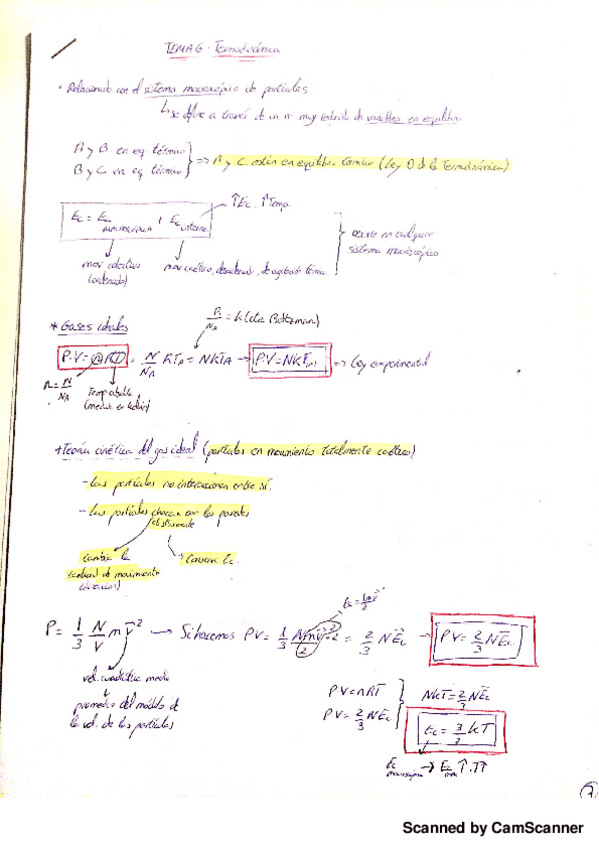 TEMA 6. Termodinámica
· Relacionado con el sistema macroscópico de partículas
↳ se define a través de un nº muy reducido de variables en equilibrio
A y B en eq. térmico
B y C en eq. térmico
=> A y C están en equilibrio térmico (Ley 0 de la Termodinámica)
↑Ec. ↑Temp.
Ec = Ec macroscópica + Ec interna
ocurre en cualquier
sistema macroscópico
mov colectivo
(ordenado)
mov caótico, desordenado, de agitación térmica
R/NA = k (cte Boltzman)
* Gases ideales
P·V = nRT = N/NA RT = NKT → P·V = NKT => Ley experimental
n = N/NA
Temp absoluta
(medida en kelvin)
* Teoría cinética del gas ideal (partículas en movimiento totalmente caótico)
- Las partículas no interaccionan entre sí.
- Las partículas chocan con las paredes
elásticamente
cambia la
cantidad de movimiento
(dirección)
Conserva Ec.
Ec = 1/2 mv²
P = 1/3 N/V m v² → Si hacemos PV = 1/3 N m v² · 2/2 = 2/3 N Ec → PV = 2/3 N Ec
vel. cuadrática media
promedio del módulo de
la vel. de las partículas
PV = nRT
PV = 2/3 N Ec
NKT = 2/3 N Ec
Ec = 3/2 KT
Ec → Ec ↑. T↑
Scanned by CamScanner